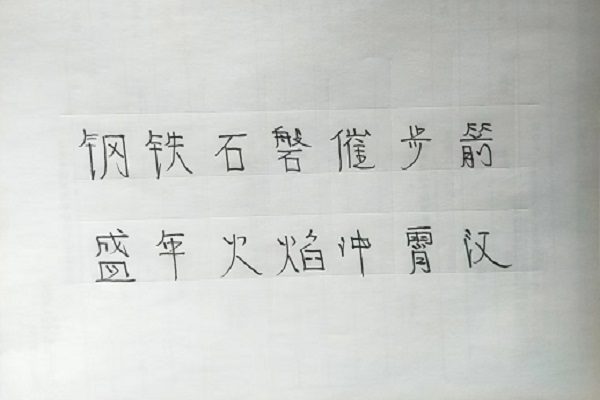 钢铁石磐催步箭
盛年火焰冲霄汉